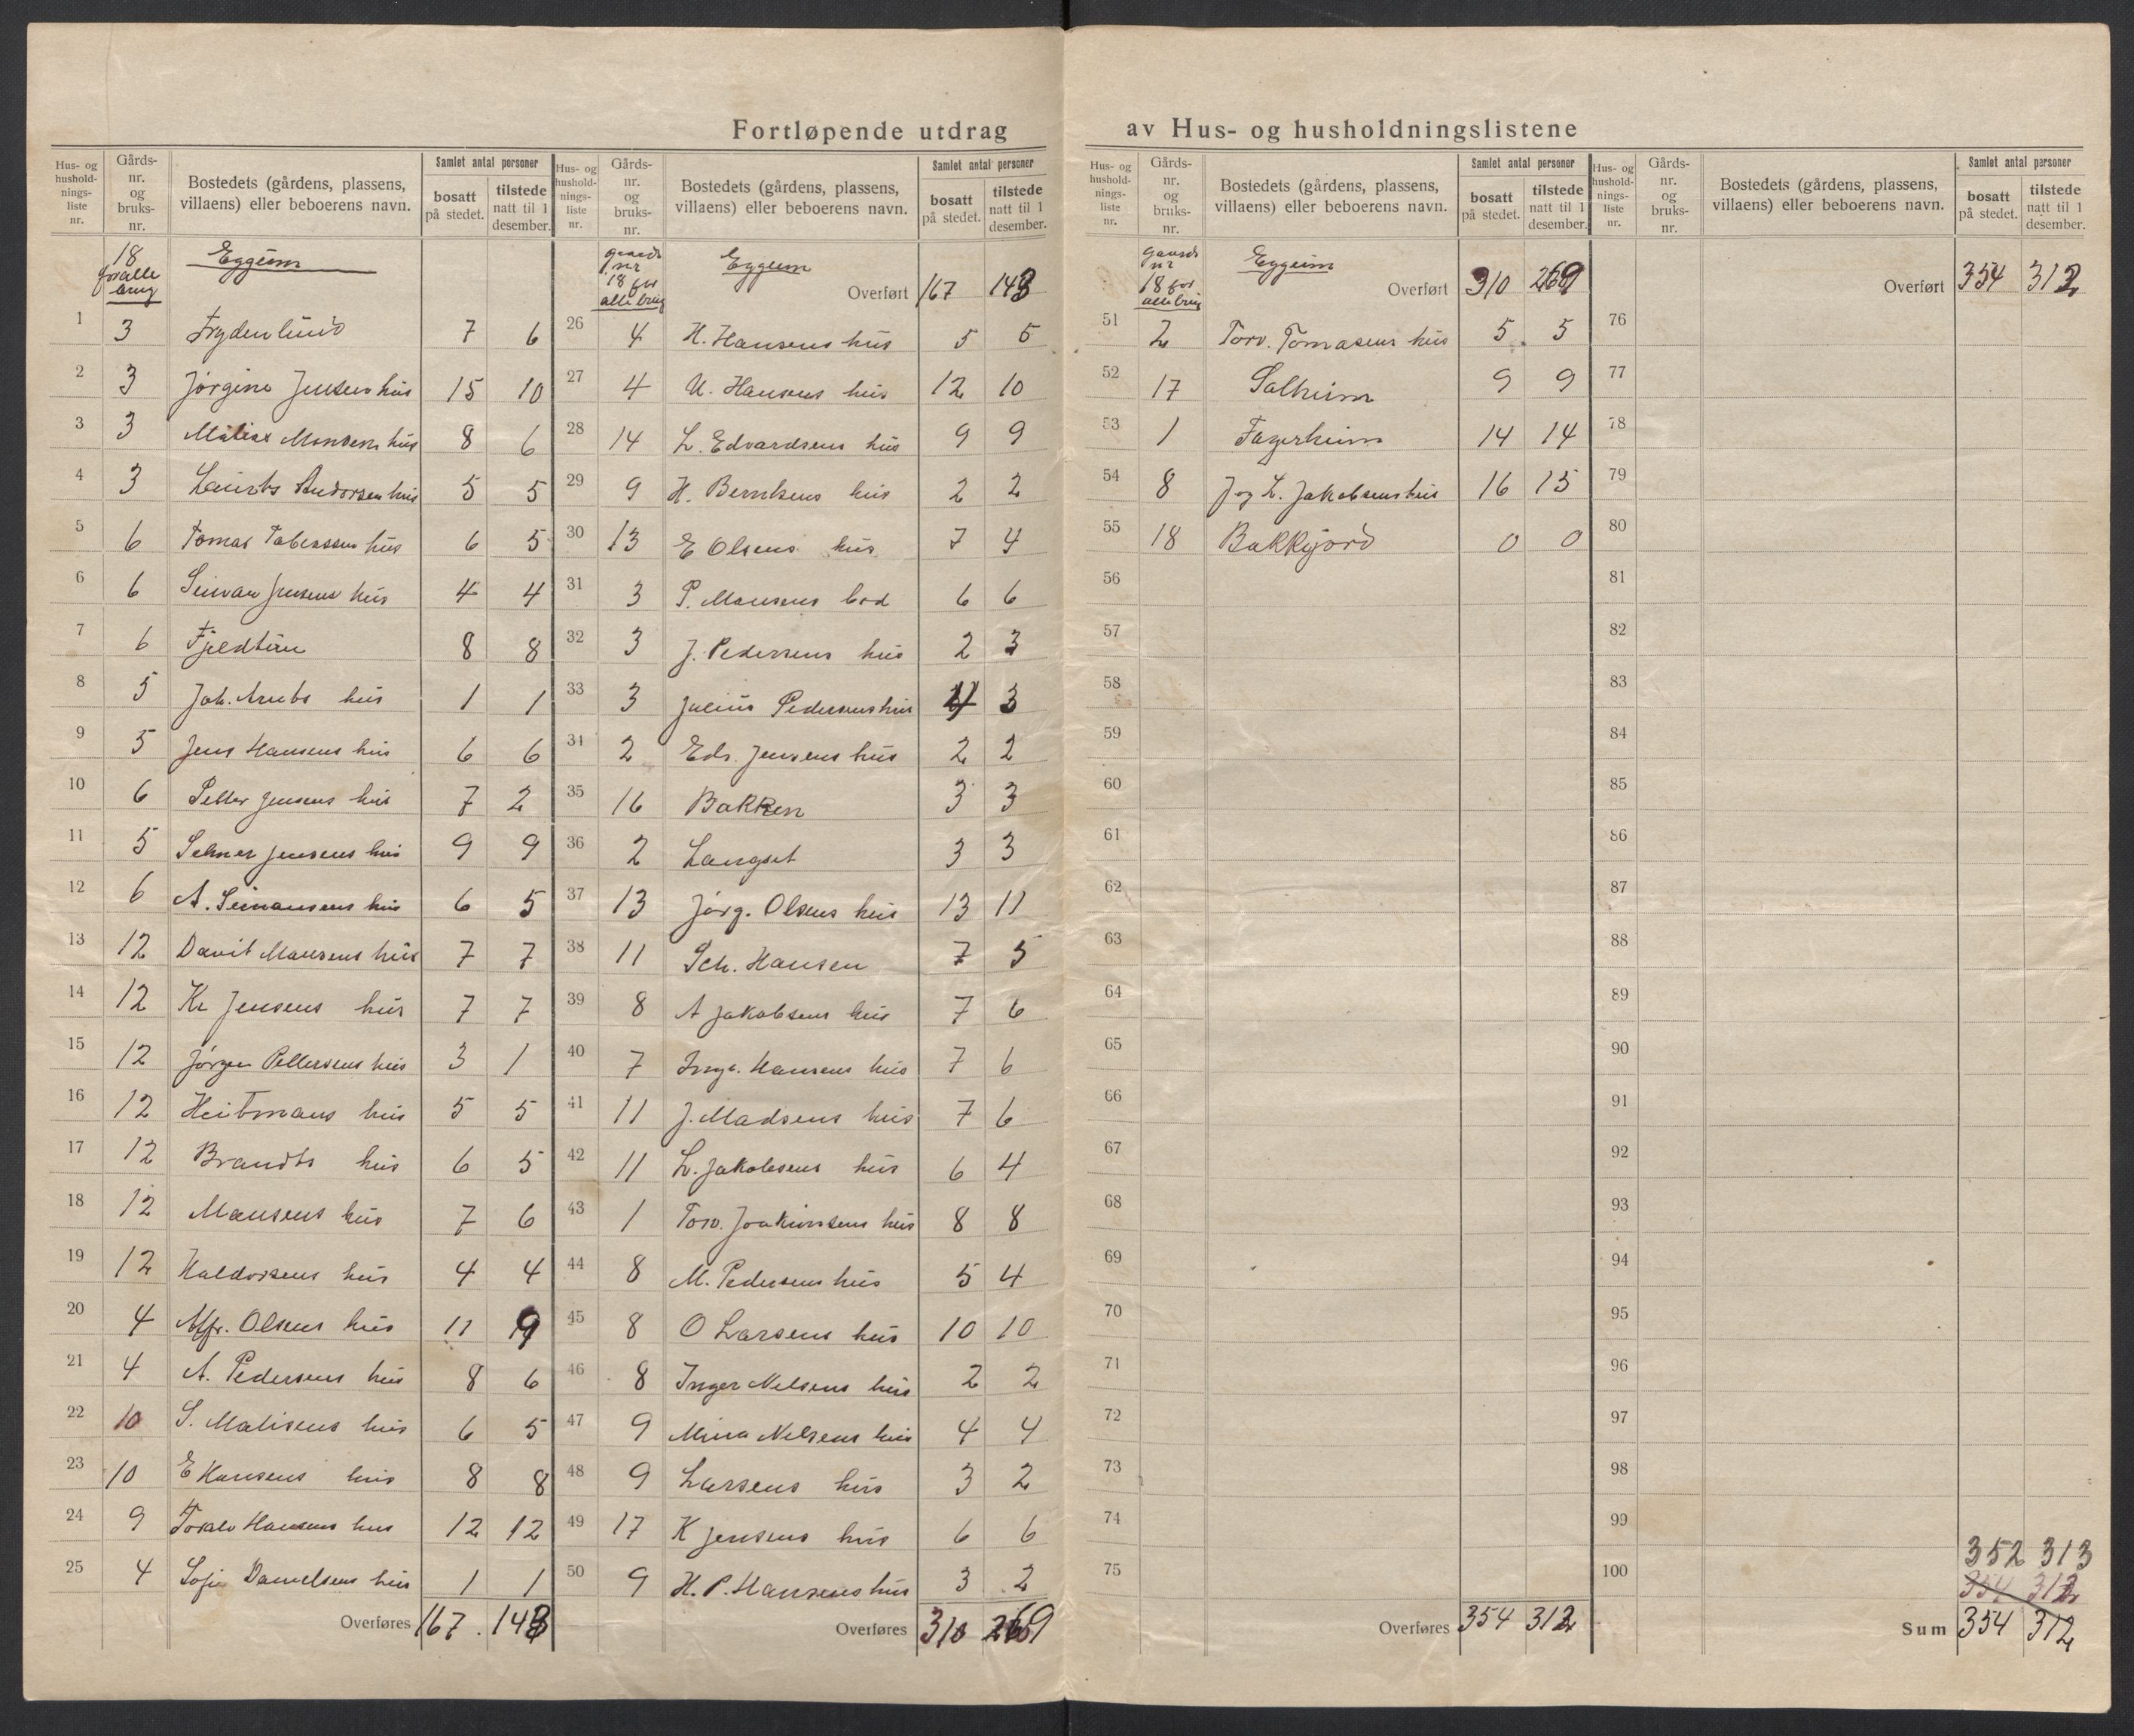 Fortløpende utdrag av Hus- og husholdningslistene
Hus- og husholdnings-liste nr. Gårds-nr. og bruks-nr. Bostedets (gårdens, plassens, villaens) eller beboerens navn. Samlet antal personer bosatt på stedet. tilstede natt til 1 desember.
18 for alle brug Eggum
1 3 Frydenlund 7 6
2 3 Jørgine Jensens hus 15 10
3 3 Monsens hus 8 6
4 3 Laurits Andorsen hus 5 5
5 6 Tomas hus 6 5
6 6 Jensens hus 4 4
7 6 Fjeldtun 8 8
8 5 Joh. hus 1 1
9 5 Jens Hansens hus 6 6
10 6 Petter Jensens hus 7 2
11 5 Jensens hus 9 9
12 6 A. hus 6 5
13 12 Davit Mausens hus 7 7
14 12 Kr Jensens hus 7 7
15 12 Jørgen Pettersens hus 3 1
16 12 Heitmans hus 5 5
17 12 Brandts hus 6 5
18 12 Mausens hus 7 6
19 12 Haldorsens hus 4 4
20 4 Alfr. Olsens hus 11 9
21 4 A. Pedersens hus 8 6
22 10 S. Malisens hus 6 5
23 10 E Hansens hus 8 8
24 9 Hansens hus 12 12
25 4 Sofie Danielsens hus 1 1
Overføres 167 143
Hus- og husholdnings-liste nr. Gårds-nr. og bruks-nr. Bostedets (gårdens, plassens, villaens) eller beboerens navn. Samlet antal personer bosatt på stedet. tilstede natt til 1 desember.
gaards nr 18 for alle brug Eggum Overført 167 143
26 4 H. Hansens hus 5 5
27 4 U. Hansens hus 12 10
28 14 L. Edvardsens hus 9 9
29 9 H. Berntsens hus 2 2
30 13 E Olsens hus 7 4
31 3 P. Mausens bod 6 6
32 3 J. Pedersens hus 2 3
33 3 Julius Pedersens hus 4 3
34 2 Edv. Jensens hus 2 2
35 16 Bakken 3 3
36 2 Langset 3 3
37 13 Jørg. Olsens hus 13 11
38 11 Sch. Hansen 7 5
39 8 A Jakobsens hus 7 6
40 7 Ingv. Hansens hus 7 6
41 11 J. Madsens hus 7 6
42 11 L. Jakobsens hus 6 4
43 1 Torv. Joakimsens hus 8 8
44 8 M. Pedersens hus 5 4
45 8 O Larsens hus 10 10
46 8 Inger Nelsens hus 2 2
47 9 Mina Nelsens hus 4 4
48 9 Larsens hus 3 2
49 17 K Jensens hus 6 6
50 9 H. P. Hansens hus 3 2
Overføres 310 269
Hus- og husholdnings-liste nr. Gårds-nr. og bruks-nr. Bostedets (gårdens, plassens, villaens) eller beboerens navn. Samlet antal personer bosatt på stedet. tilstede natt til 1 desember.
gaards nr 18 for alle brug Eggum Overført 310 269
51 2 Torv. Tomasens hus 5 5
52 17 Solheim 9 9
53 1 Fagerheim 14 14
54 8 J og L. Jakobsens hus 16 15
55 18 Bakkejord 0 0
56
57
58
59
60
61
62
63
64
65
66
67
68
69
70
71
72
73
74
75
Overføres 354 312
Hus- og husholdnings-liste nr. Gårds-nr. og bruks-nr. Bostedets (gårdens, plassens, villaens) eller beboerens navn. Samlet antal personer bosatt på stedet. tilstede natt til 1 desember.
Overført 354 312
76
77
78
79
80
81
82
83
84
85
86
87
88
89
90
91
92
93
94
95
96
97
98
99
352 313
100 354 312
Sum 354 312